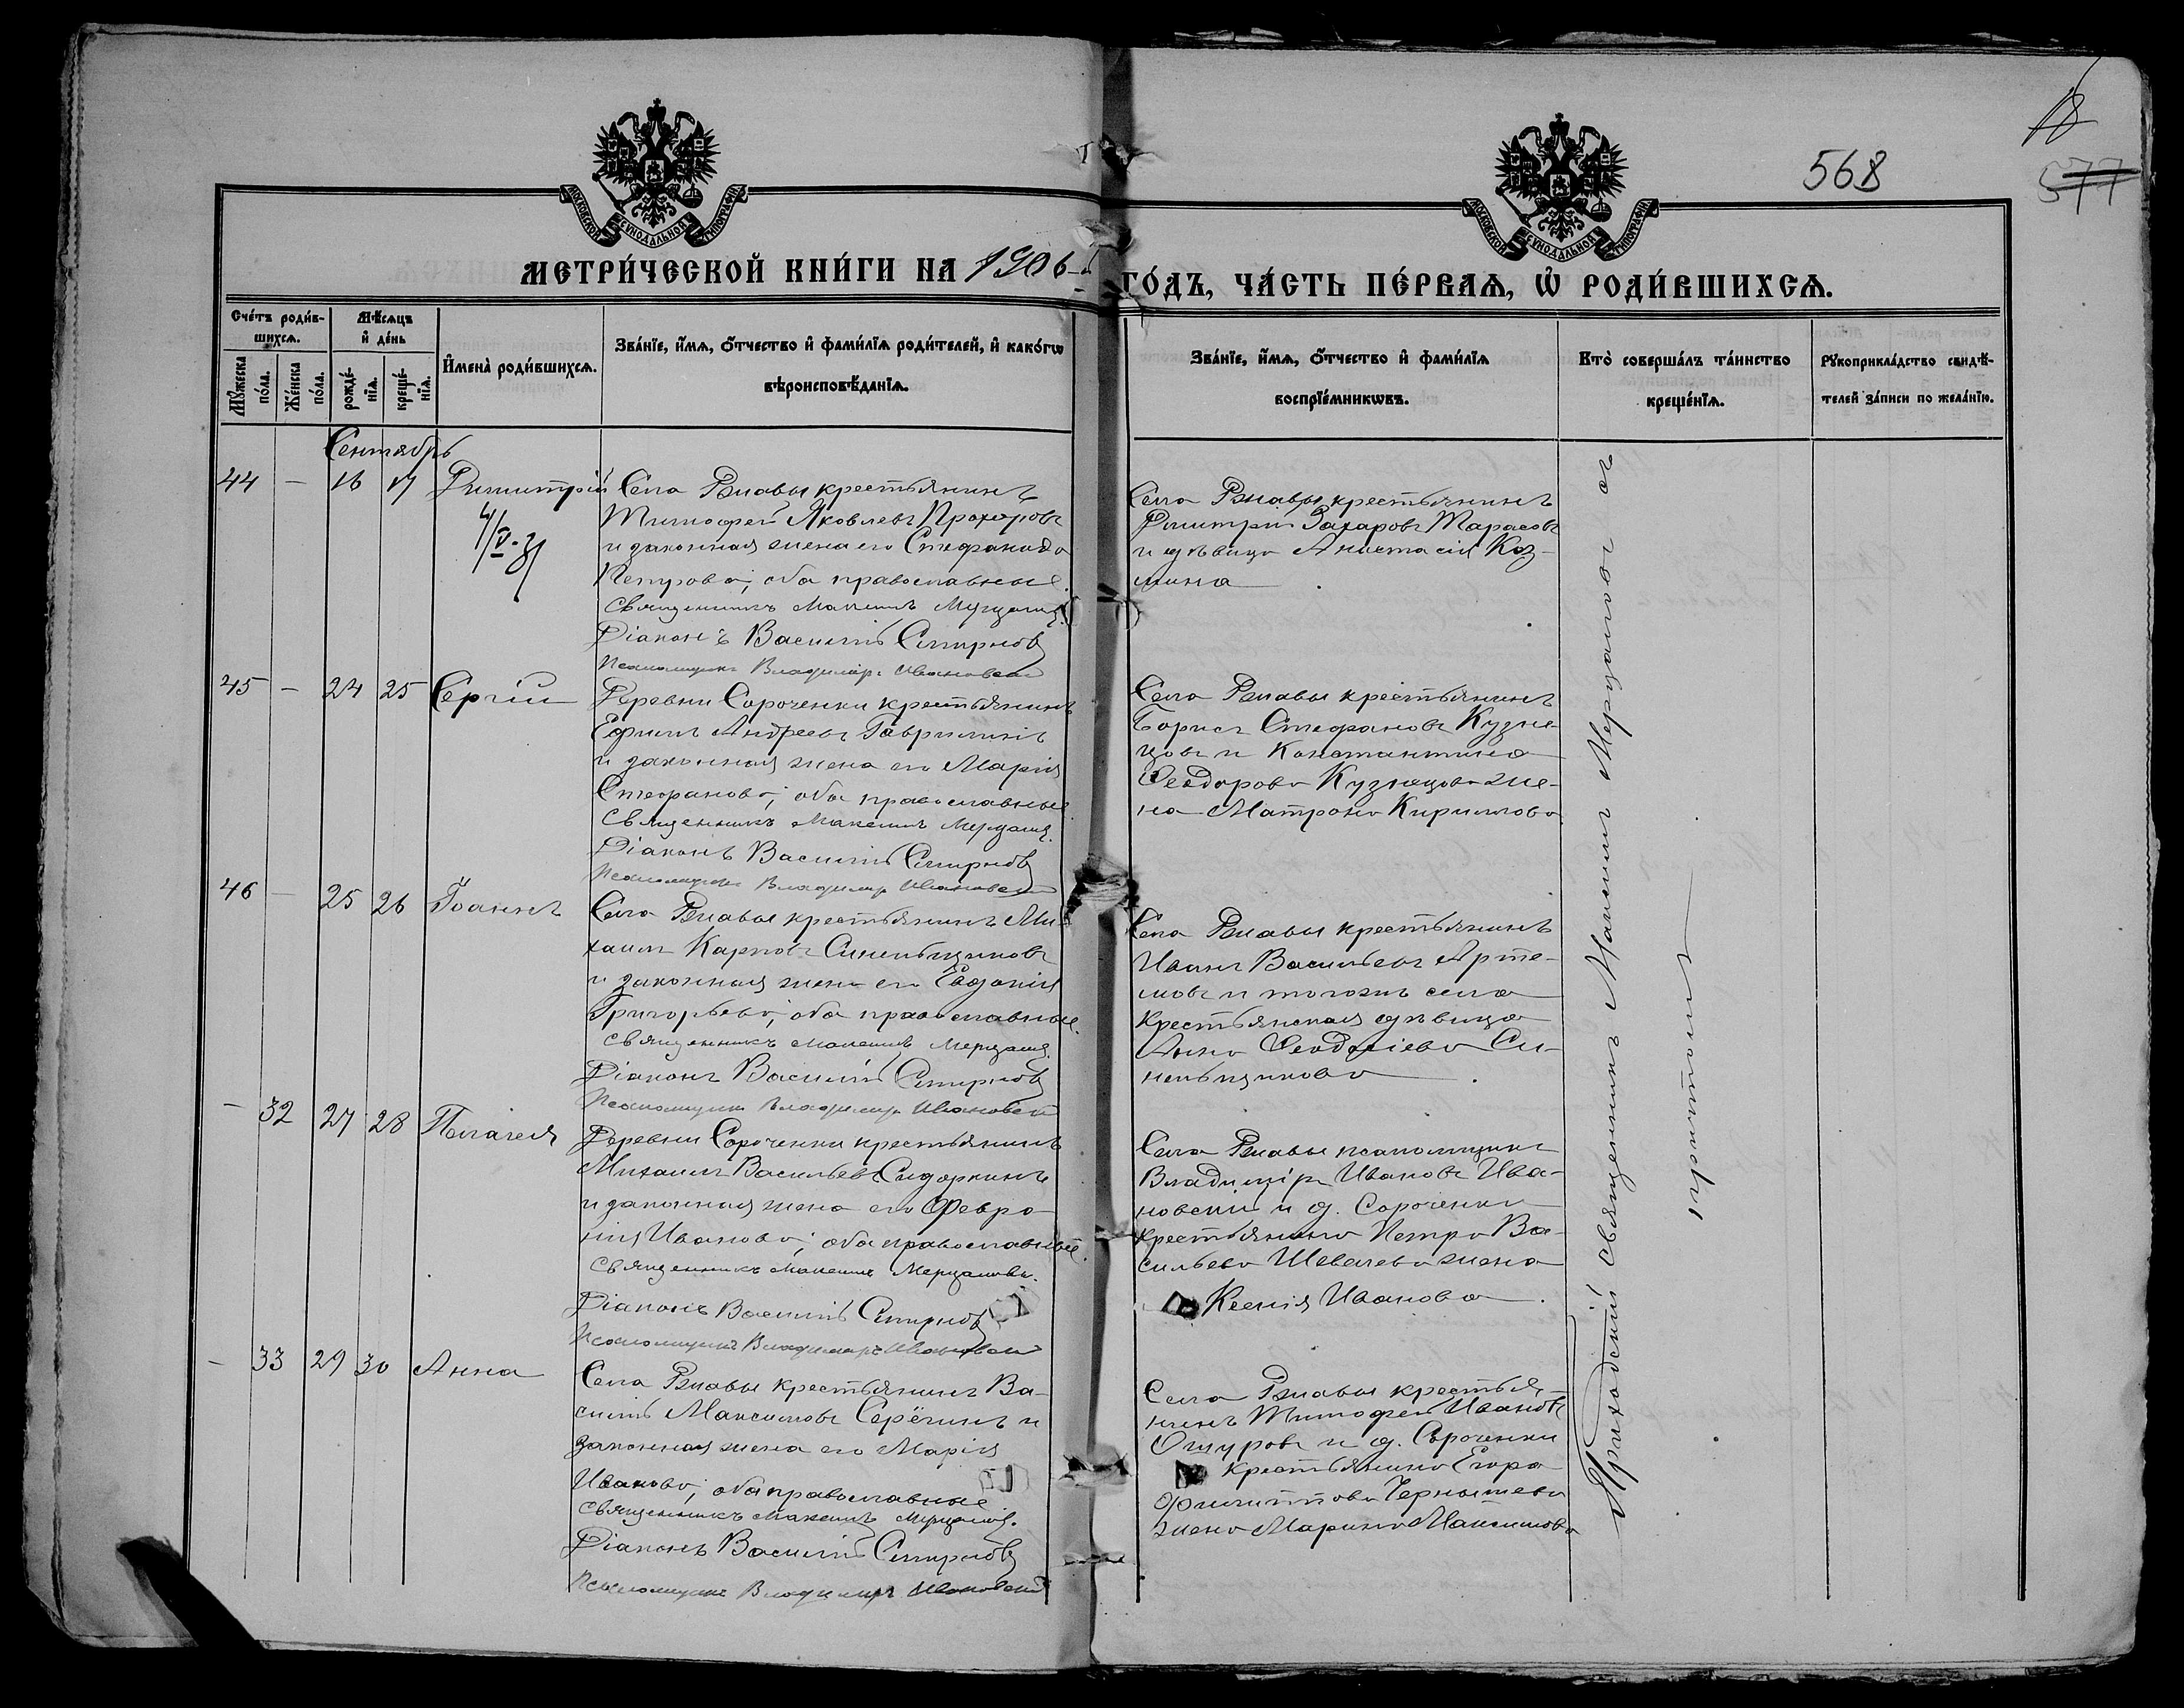 18
568
577
МОСКОВСКОЙ СѴНОДАЛЬНОЙ ТИПОГРАФІИ
МОСКОВСКОЙ СѴНОДАЛЬНОЙ ТИПОГРАФІИ
МЕТРИ́ЧЕСКОЙ КНИ́ГИ НА 1906-й ГО́ДЪ, ЧА́СТЬ ПЕ́РВАѦ, Ѡ҆ РОДИ́ВШИХСѦ.
Сче́тъ роди́в-
шихсѧ.
Мѣ́сѧцъ
и҆ де́нь
Мꙋ́жеска
по́ла.
Же́нска
по́ла.
рожде́-
нїѧ.
креще́-
нїѧ.
И҆мена̀ роди́вшихсѧ.
Зва́нїе, и҆́мѧ, ѻ҆́тчество и҆ фами́лїѧ роди́телей, и҆ како́гѡ
вѣроисповѣ́данїѧ.
Зва́нїе, и҆́мѧ, ѻ҆́тчество и҆ фами́лїѧ
воспрїе́мникѡвъ.
Кто̀ соверша́лъ та́инство
креще́нїѧ.
Рꙋкоприкла́дство свидѣ́-
телей за́писи по жела́нїю.
Сентябрь
44 – 16 17 Димитрій
Села Ржавы крестьянинъ
Тимофей Яковлевъ Прохоровъ
и законная жена его Стефанида
Петрова; оба православные.
Священникъ Максимъ Мерцаловъ.
Діаконъ Василій Смирновъ
Псаломщикъ Владиміръ Ивановскій
Села Ржавы крестьянинъ
Димитрій Захаровъ Тарасовъ
и дѣвица Анастасія Коз-
мина
45 – 24 25 Сергій
Деревни Сороченки крестьянинъ
Ефимъ Андреевъ Гаврилинъ
и законная жена его Марія
Стефанова; оба православные
Священникъ Максимъ Мерцаловъ.
Діаконъ Василій Смирновъ
Псаломщикъ Владиміръ Ивановскій
Села Ржавы крестьянинъ
Борисъ Стефановъ Кузне-
цовъ и Константина
Ѳеодорова Кузнецова же-
на Матрона Кириллова.
46 – 25 26 Іоаннъ
Села Ржавы крестьянинъ Ми-
хаилъ Карповъ Синельщиковъ
и законная жена его Евдокія
Григорьева; оба православные.
Священникъ Максимъ Мерцаловъ.
Діаконъ Василій Смирновъ
Псаломщикъ Владиміръ Ивановскій
Села Ржавы крестьянинъ
Иванъ Васильевъ Арте-
мовъ и тогожъ села
крестьянская дѣвица
Анна Ѳеодосіева Си-
нельщикова
– 32 27 28 Пелагея
Деревни Сороченки крестьянинъ
Михаилъ Васильевъ Сидоркинъ
и законная жена его Февро-
нія Иванова; оба православные.
Священникъ Максимъ Мерцаловъ.
Діаконъ Василій Смирновъ
Псаломщикъ Владиміръ Ивановскій
Села Ржавы псаломщикъ
Владиміръ Ивановъ Ива-
новскій и д. Сороченки
крестьянина Петра Ва-
сильева Шевелева жена
Ксенія Иванова.
– 33 29 30 Анна
Села Ржавы крестьянинъ Ва-
силій Максимовъ Серёгинъ и
законная жена его Марія
Иванова; оба православные
Священникъ Максимъ Мерцаловъ.
Діаконъ Василій Смирновъ
Псаломщикъ Владиміръ Ивановскій
Села Ржавы крестья-
нинъ Тимофей Ивановъ
Ошуровъ и д. Сороченки
крестьянина Егора
Филиппова Чернышева
жена Марина Максимова
Приходскій священникъ Максимъ Мерцаловъ съ
причтомъ